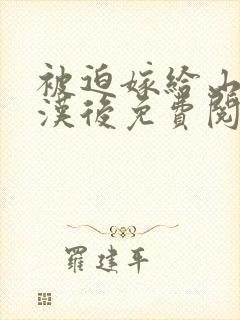 被迫嫁給山
漢後免費閱
羅建平